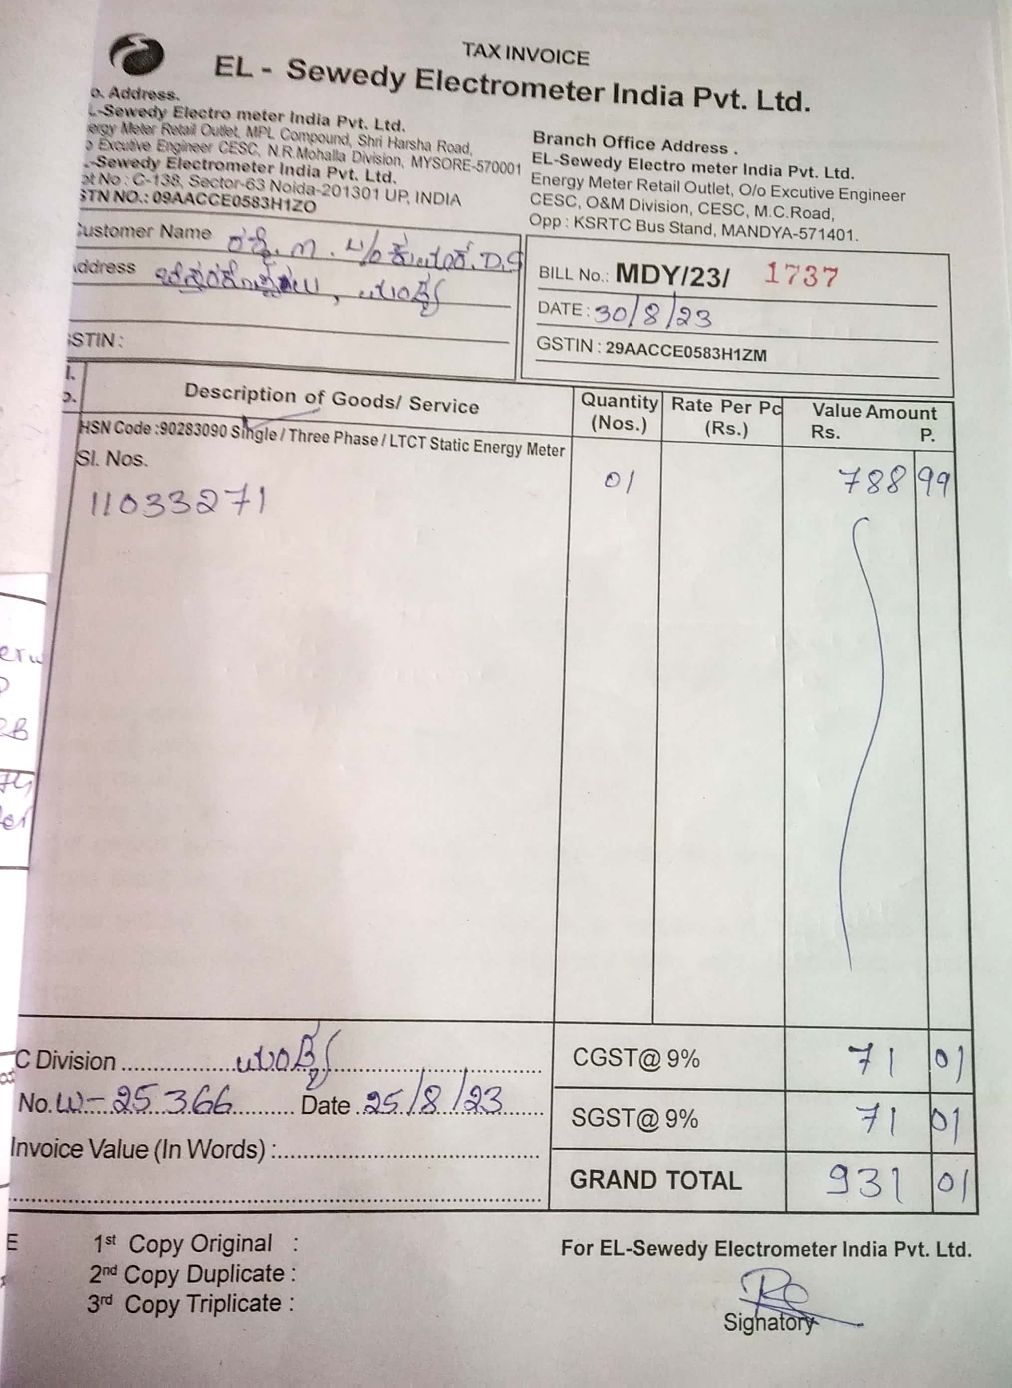 TAX INVOICE
EL - Sewedy Electrometer India Pvt. Ltd.
o. Address.
L-Sewedy Electro meter India Pvt. Ltd.
ergy Meter Retail Outlet, MPL Compound, Shri Harsha Road,
o Excutive Engineer CESC, N.R.Mohalla Division, MYSORE-570001
-Sewedy Electrometer India Pvt. Ltd.
ot No : C-138, Sector-63 Noida-201301 UP, INDIA
STN NO.: 09AACCE0583H1ZO
Branch Office Address .
EL-Sewedy Electro meter India Pvt. Ltd.
Energy Meter Retail Outlet, O/o Excutive Engineer
CESC, O&M Division, CESC, M.C.Road,
Opp : KSRTC Bus Stand, MANDYA-571401.
ustomer Name
ddress
STIN :
BILL No.: MDY/23/ 1737
DATE : 30/8/23
GSTIN : 29AACCE0583H1ZM
l. Description of Goods/ Service Quantity Rate Per Pc Value Amount
o. (Nos.) (Rs.) Rs. P.
HSN Code :90283090 Single / Three Phase / LTCT Static Energy Meter
Sl. Nos.
11033271 01 788 99
C Division ಮಂಡ್ಯ CGST@ 9% 71 01
No. W-25366 Date 25/8/23 SGST@ 9% 71 01
Invoice Value (In Words) :
GRAND TOTAL 931 01
E 1st Copy Original :
2nd Copy Duplicate :
3rd Copy Triplicate :
For EL-Sewedy Electrometer India Pvt. Ltd.
Signatory